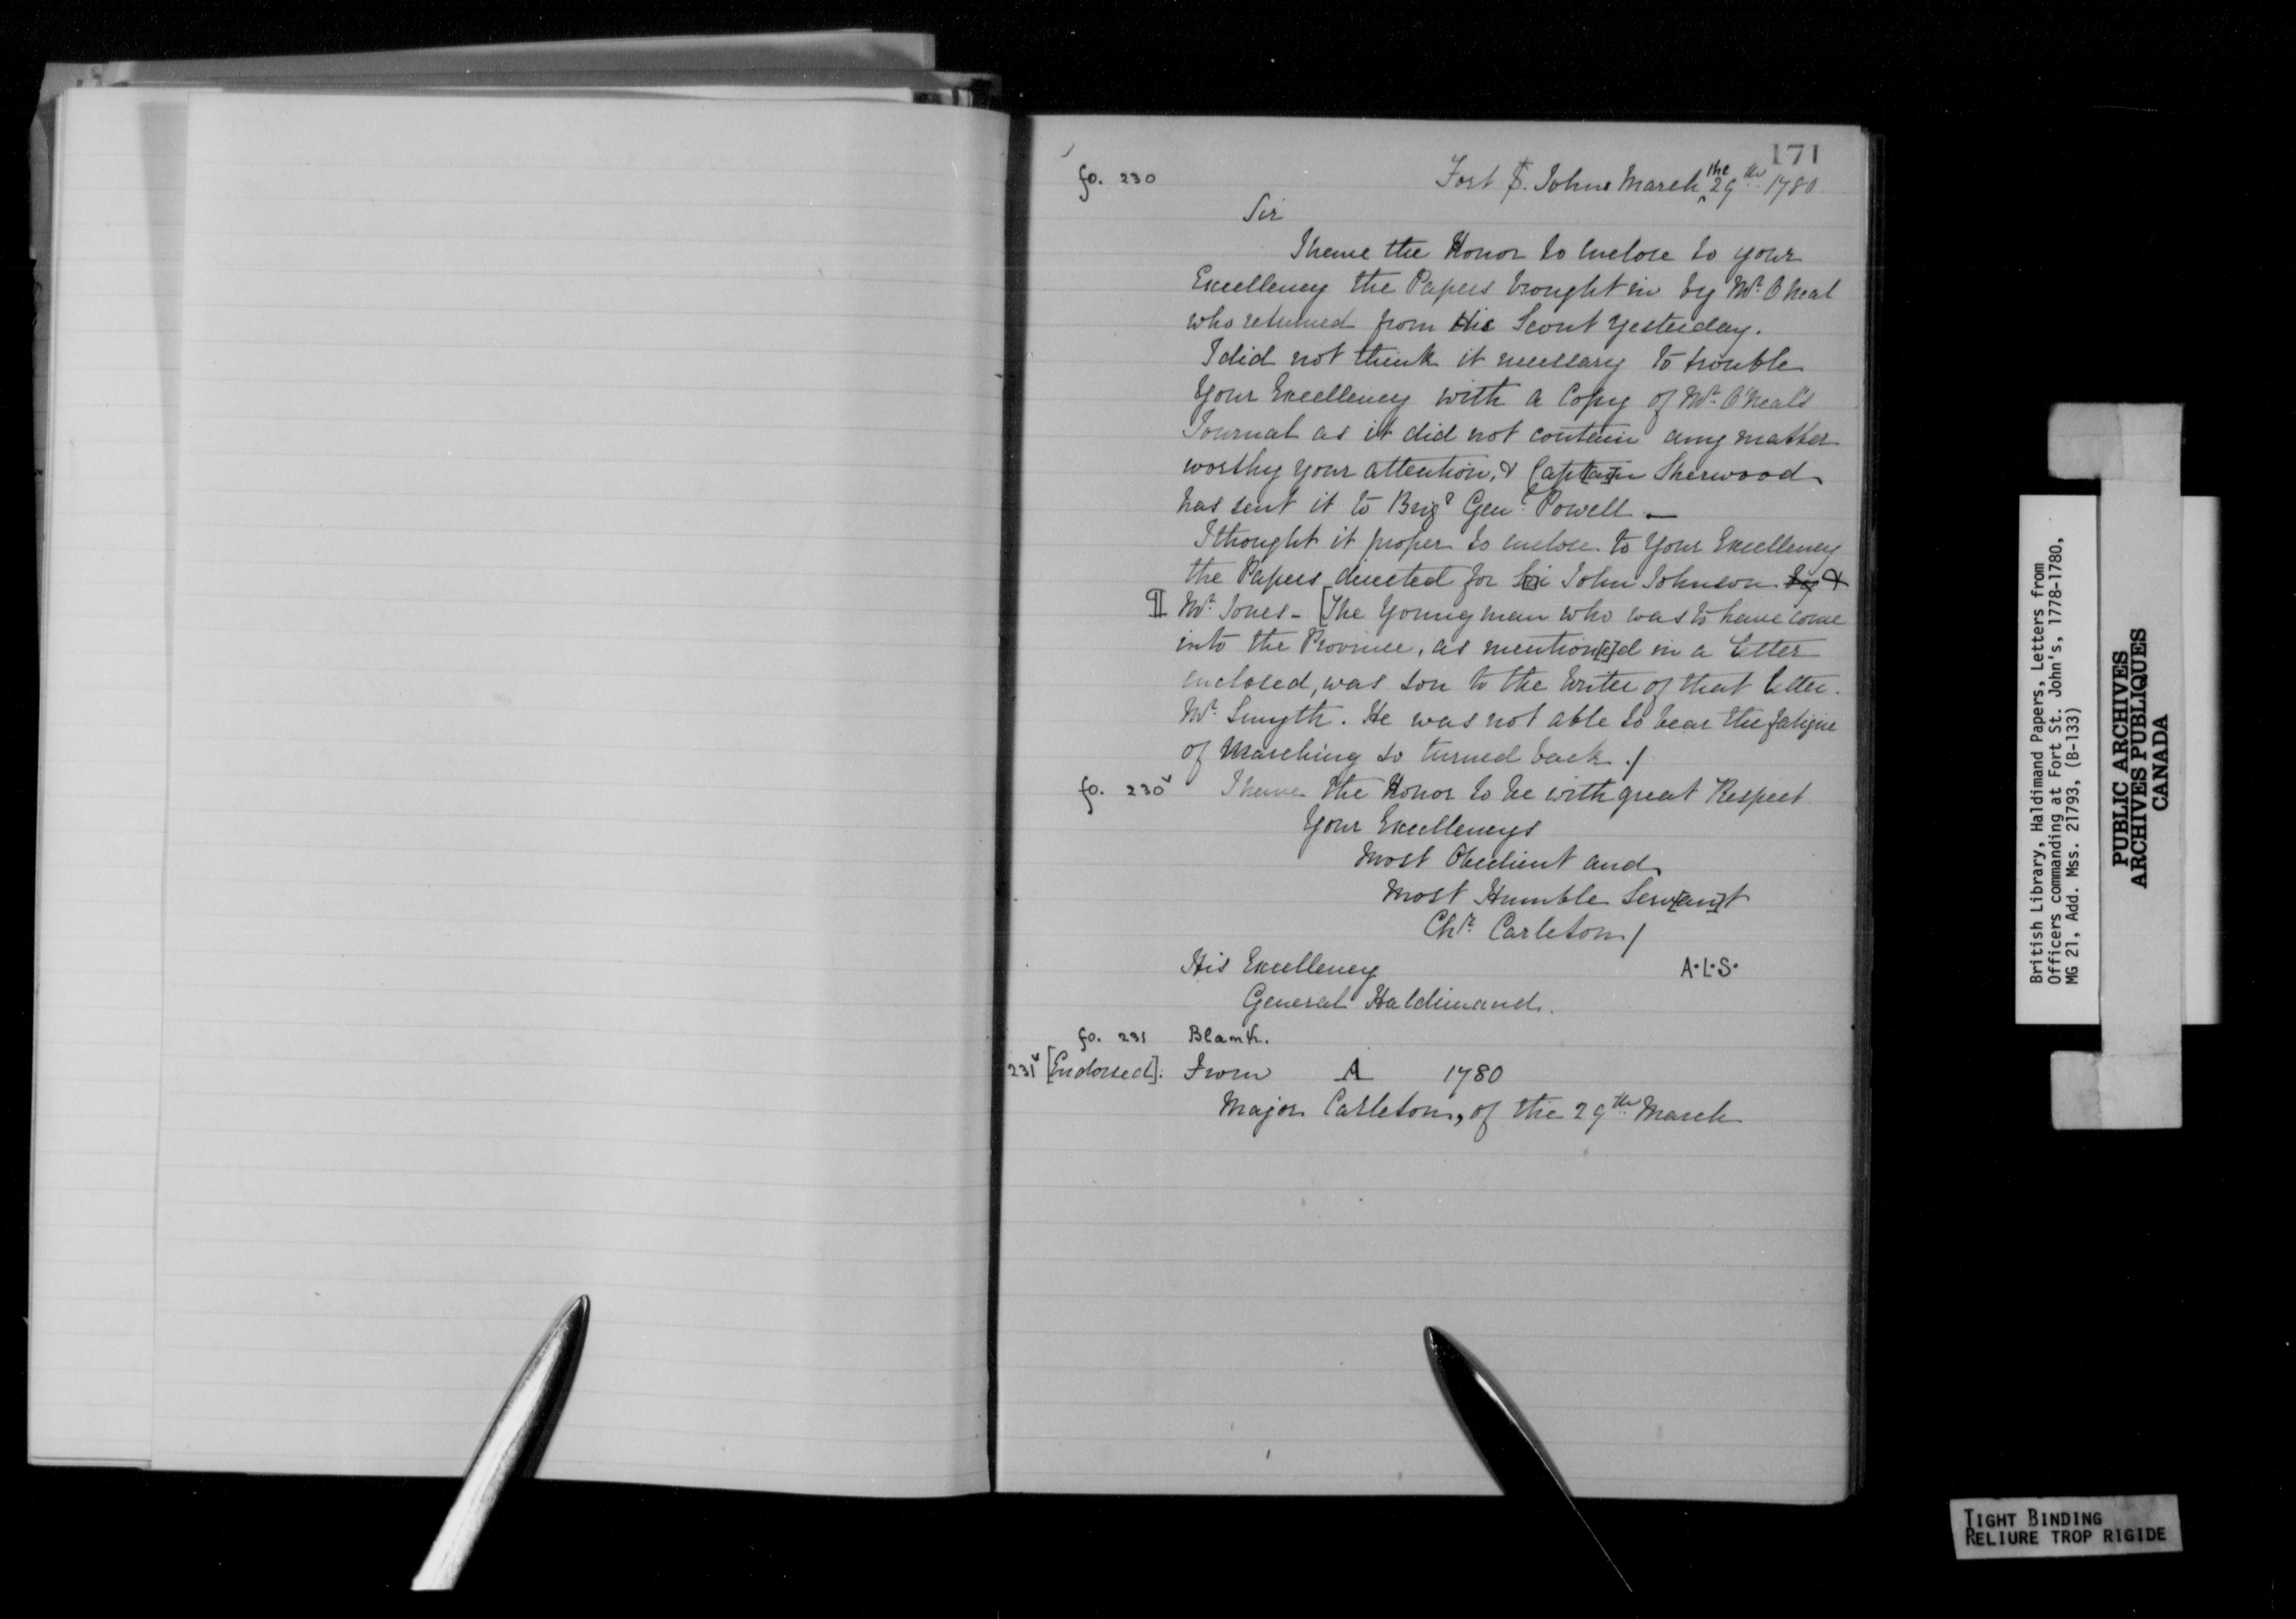 171
fo. 230
Fort St. Johns March the 29th 1780
Sir
I have the Honor to Inclose to your
Excellency the Papers brought in by Mr. O Neal
who returned from His Scout yesterday.
I did not think it necessary to trouble
Your Excellency with a Copy of Mr. O'Neal's
Journal as it did not contain any matter
worthy your attention, & Capt[ai]n Sherwood
has sent it to Brigr Genl. Powell —
I thought it proper to enclose to Your Excellency
the Papers directed for Sir John Johnson by &
¶ Mr. Jones - [The Young man who was to have come
into the Province, as mention[e]d in a Letter
enclosed, was son to the writer of that letter.
Mr. Smyth. He was not able to bear the fatigue
of Marching so turned back ./
fo. 230v I have the Honor to be with great Respect
Your Excellencys
Most Obedient and
Most Humble Serv[an]t
Chr. Carleton /
His Excellency A.L.S.
General Haldimand.
fo. 231 Blank.
231v [Endorsed]. From A 1780
Major Carleton, of the 29th March
British Library, Haldimand Papers, Letters from
Officers commanding at Fort St. John's, 1778-1780,
MG 21, Add. Mss. 21793, (B-133)
PUBLIC ARCHIVES
ARCHIVES PUBLIQUES
CANADA
TIGHT BINDING
RELIURE TROP RIGIDE